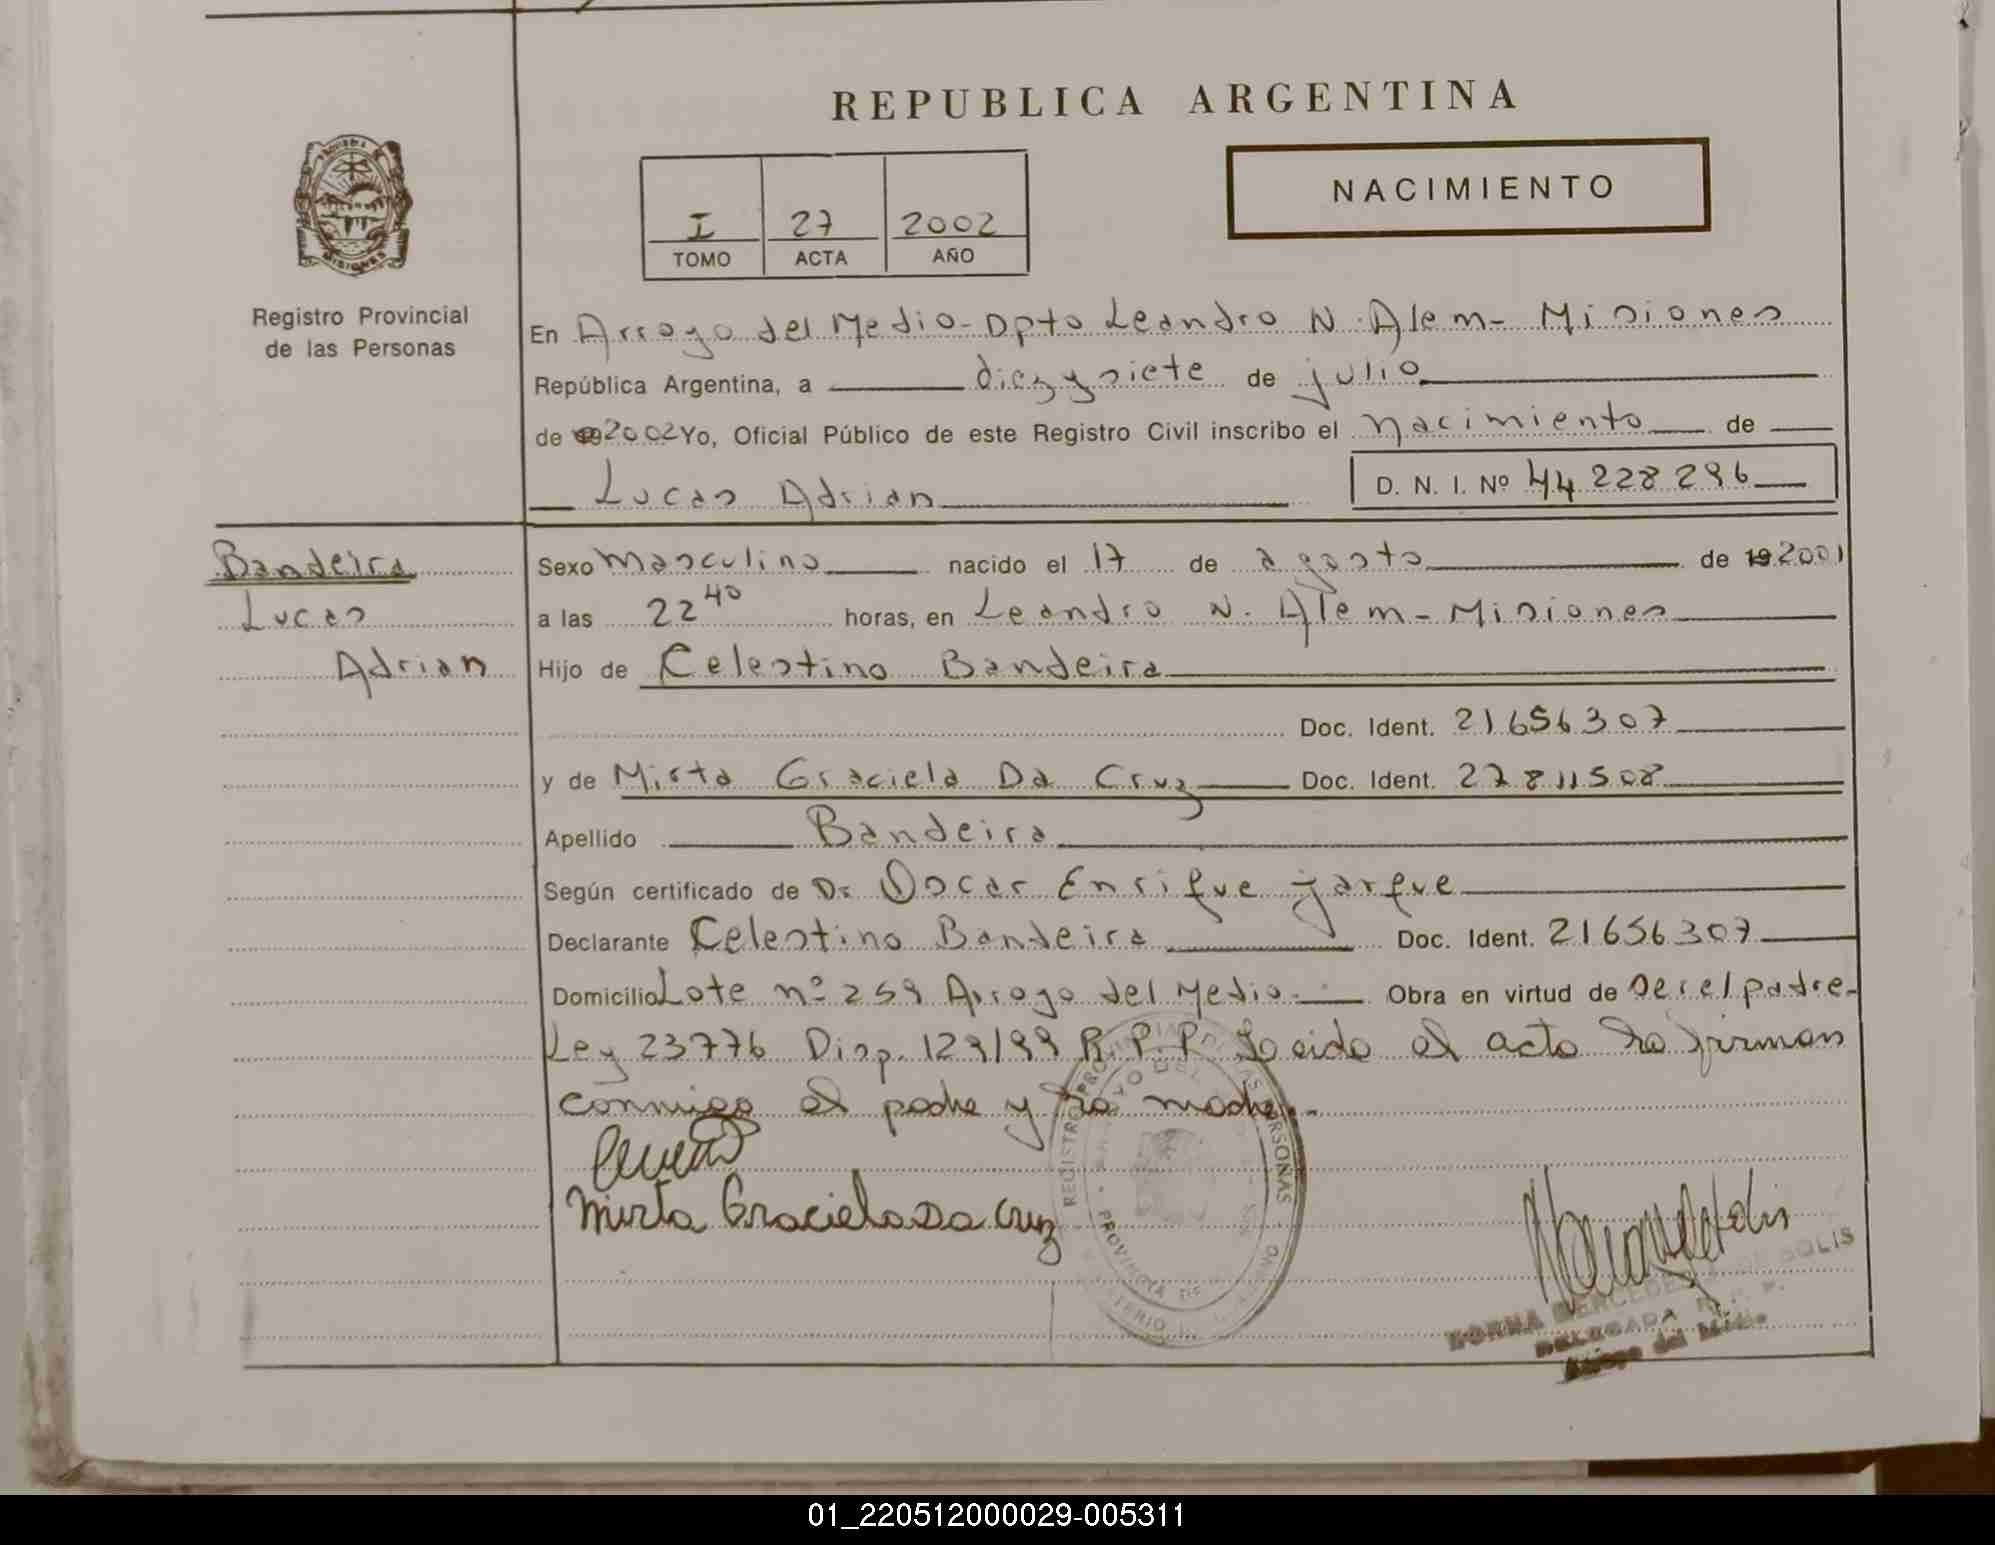 REPUBLICA ARGENTINA
NACIMIENTO
I 27 2002
TOMO ACTA AÑO
Registro Provincial
de las Personas
En Arroyo del Medio - Dpto Leandro N. Alem - Misiones
República Argentina, a diez y siete de julio
de 2002 Yo, Oficial Público de este Registro Civil inscribo el nacimiento de
Lucas Adrian D. N. I. Nº 44 228 296
Bandeira
Lucas
Adrian
Sexo masculino nacido el 17 de agosto de 19 2001
a las 22 40 horas, en Leandro N. Alem - Misiones
Hijo de Celestino Bandeira
Doc. Ident. 21656307
y de Mirta Graciela Da Cruz Doc. Ident. 22811508
Apellido Bandeira
Según certificado de Dr Oscar Enrique Jarque
Declarante Celestino Bandeira Doc. Ident. 21656307
Domicilio Lote nº 259 Arroyo del Medio. Obra en virtud de ser el padre-
Ley 23776 Disp. 129/99 R.P.P. Leida el acta la firman
conmigo el padre y la madre.-
Mirta Graciela Da Cruz
REGISTRO PROVINCIAL DE LAS PERSONAS
PROVINCIA DE
NORMA MERCEDES SOLIS
DELEGADA R. P. P.
Arroyo del Medio
01_220512000029-005311